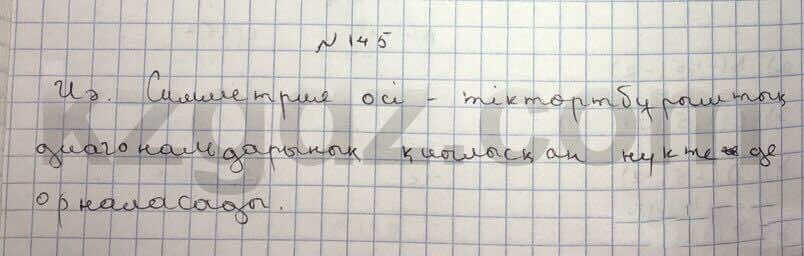 № 145
Иә. Симметрия осі - тіктөртбұрыштың
диагональдарының қиылысқан нүктеде
орналасады.
kzgdz.com